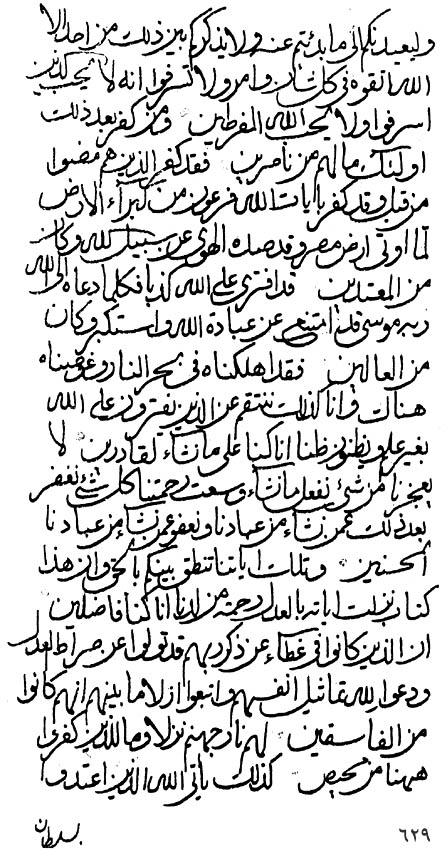 وليعيدنكم الى ما بدئتم عنه ولا يذكركم بين ذلك من احد الا
الله اتقوه في كل شان وامر ولا تسرفوا انه لا يحب الذين
اسرفوا ولا يحب الله المفرطين ومن كفر بعد ذلك
اولئك ما لهم من ناصرين فقد كفر الذين هم مضوا
من قبل وقد كفر بايات الله فرعون من كبراء الارض
لما اوتى ارض مصر وقد صده الهوى عن سبيل الله وكان
من المعتدين قد افترى على الله كذبا فكلما دعاه الى الله
ربه موسى قد امتنع عن عبادة الله واستكبر وكان
من العالين فقد اهلكناه في بحر النار وغرقناه
هناك وانا كذلك ننتقم عن الذين يفترون على الله
بغير علم ويظنون ظنا انا كنا على ما نشاء لقادرين لا
يعجزنا من شئ نفعل ما نشاء وسعت رحمتنا كل شئ نغفر
بعد ذلك عمن نشاء من عبادنا ونعفو عمن نشاء من عبادنا
المحسنين وتلك اياتنا تنطق بينكم بالحق وان هذا
كتاب نزلت اياته بالعدل رحمة من لدنا انا كنا فاصلين
ان الذين كانوا في غطاء عن ذكر ربهم قد تولوا عن صراط العدل
ودعوا لله تماثيل انفسهم واتبعوا انهم كانوا
من الفاسقين لهم نار جهنم نزلا وما للذين كفروا
ههنا من محيص كذلك ياتى الله الذين اعتدوا
بسلطان
٦٢٩